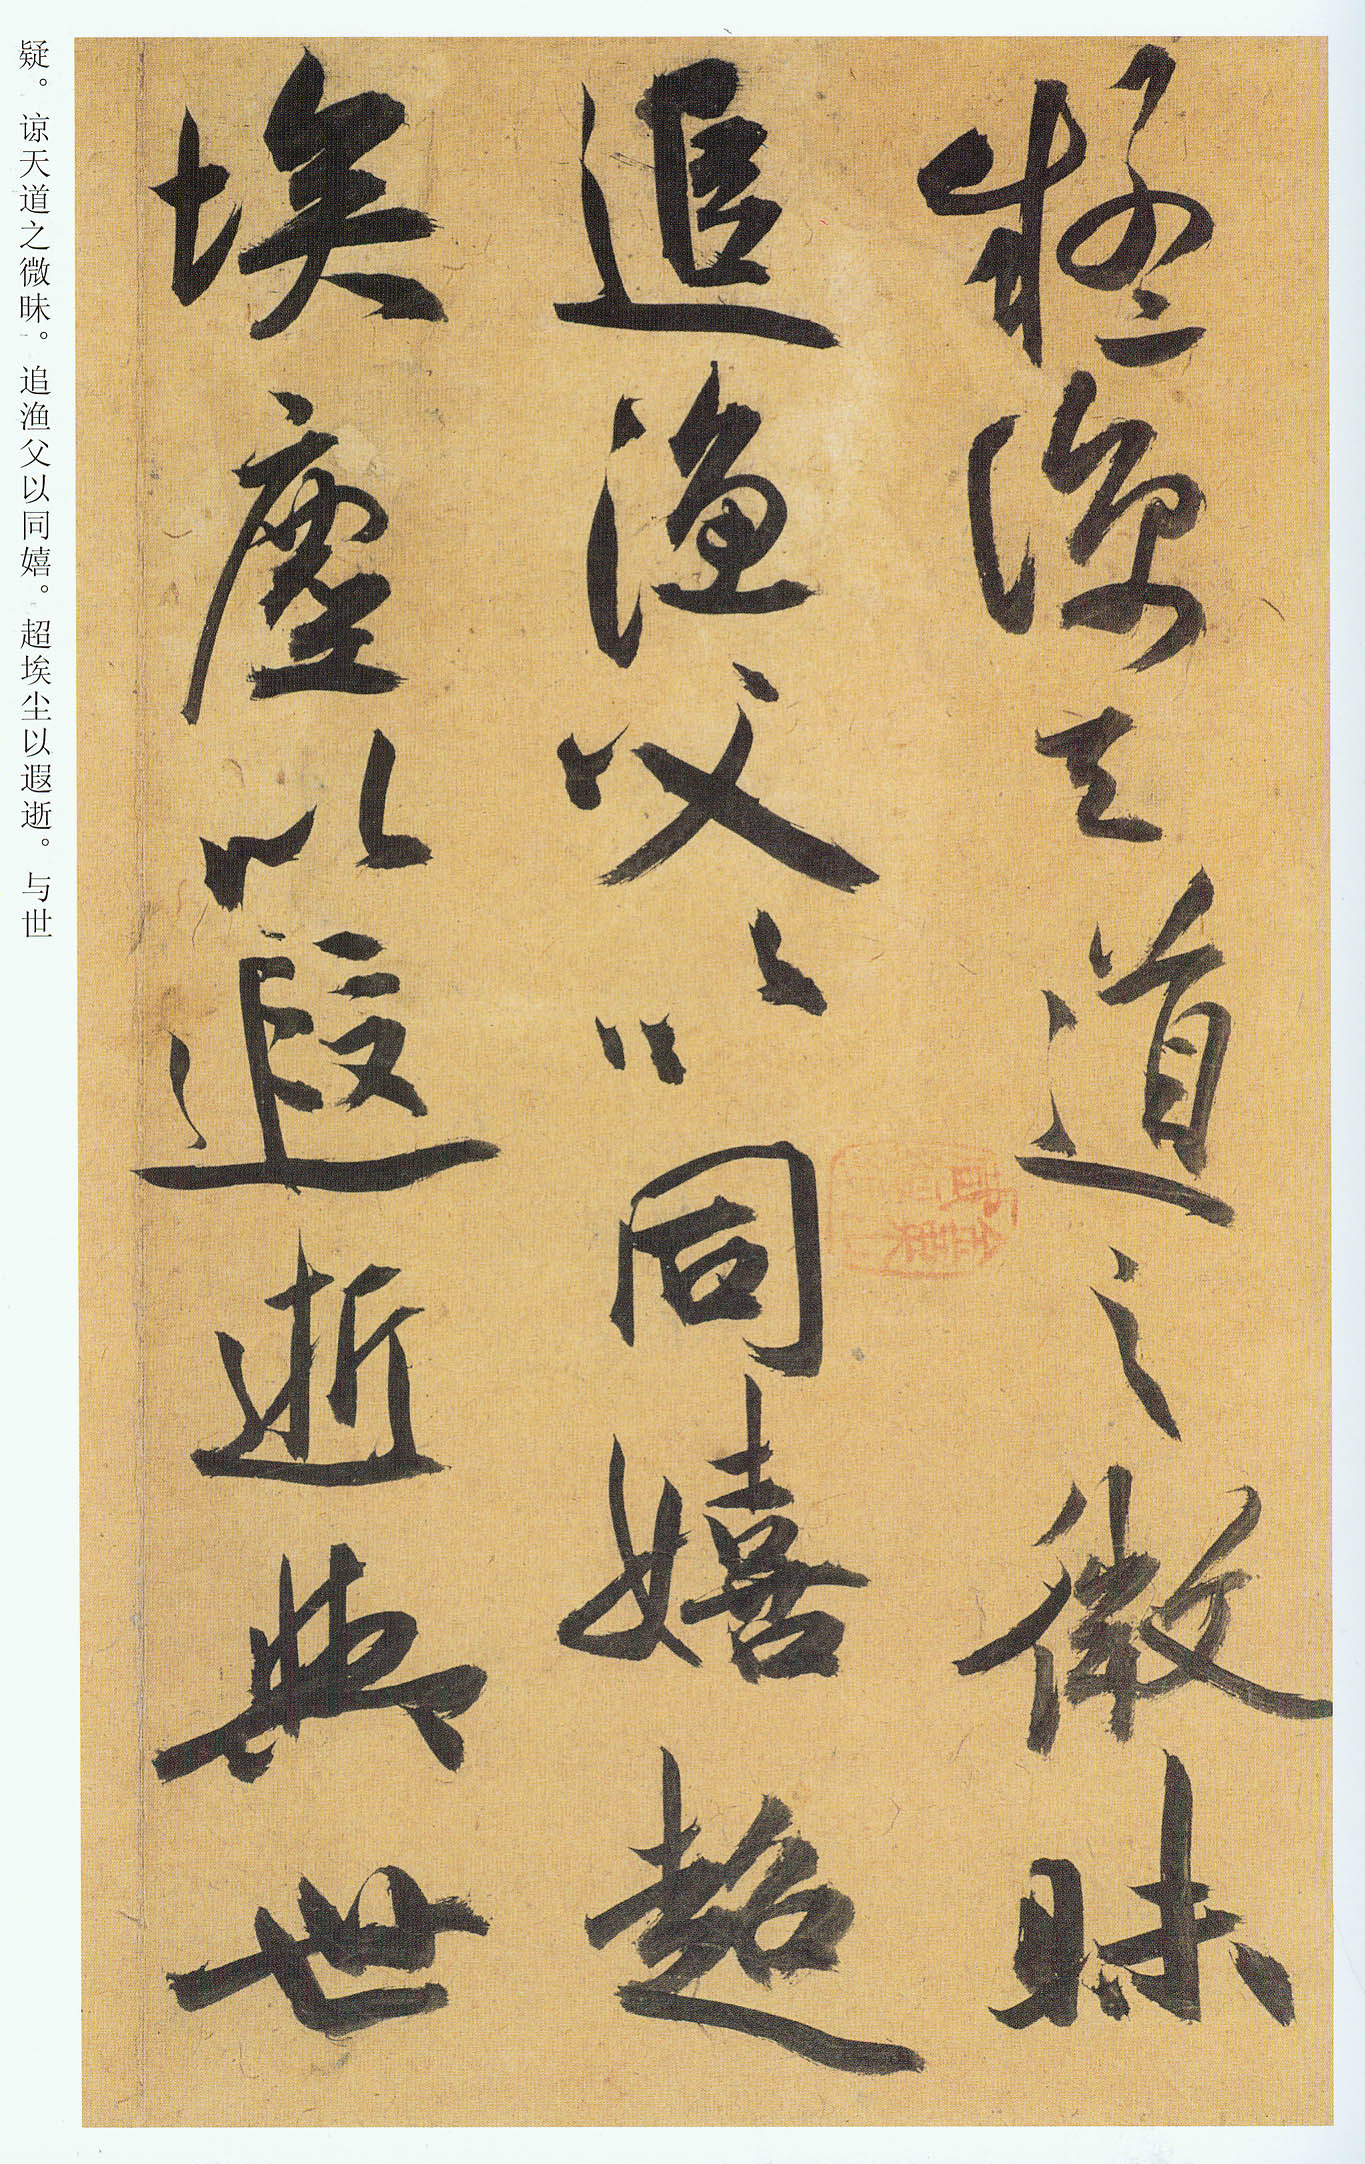 疑諒天道之微昧
追漁父以同嬉超
埃塵以遐逝與世
疑。谅天道之微昧。追渔父以同嬉。超埃尘以遐逝。与世